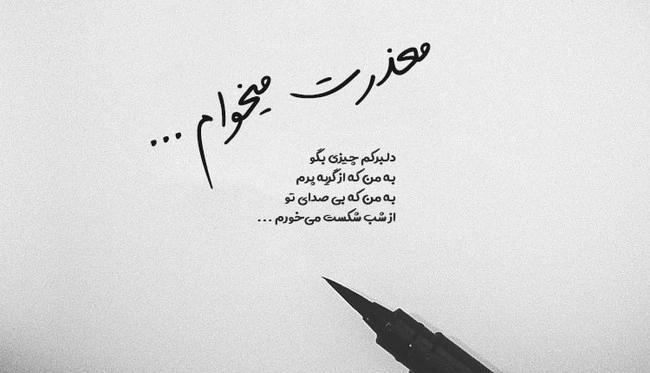 معذرت میخوام ...
دلبرکم چیزی بگو
به من که از گریه پرم
به من که بی صدای تو
از شب شکست می‌خورم ...